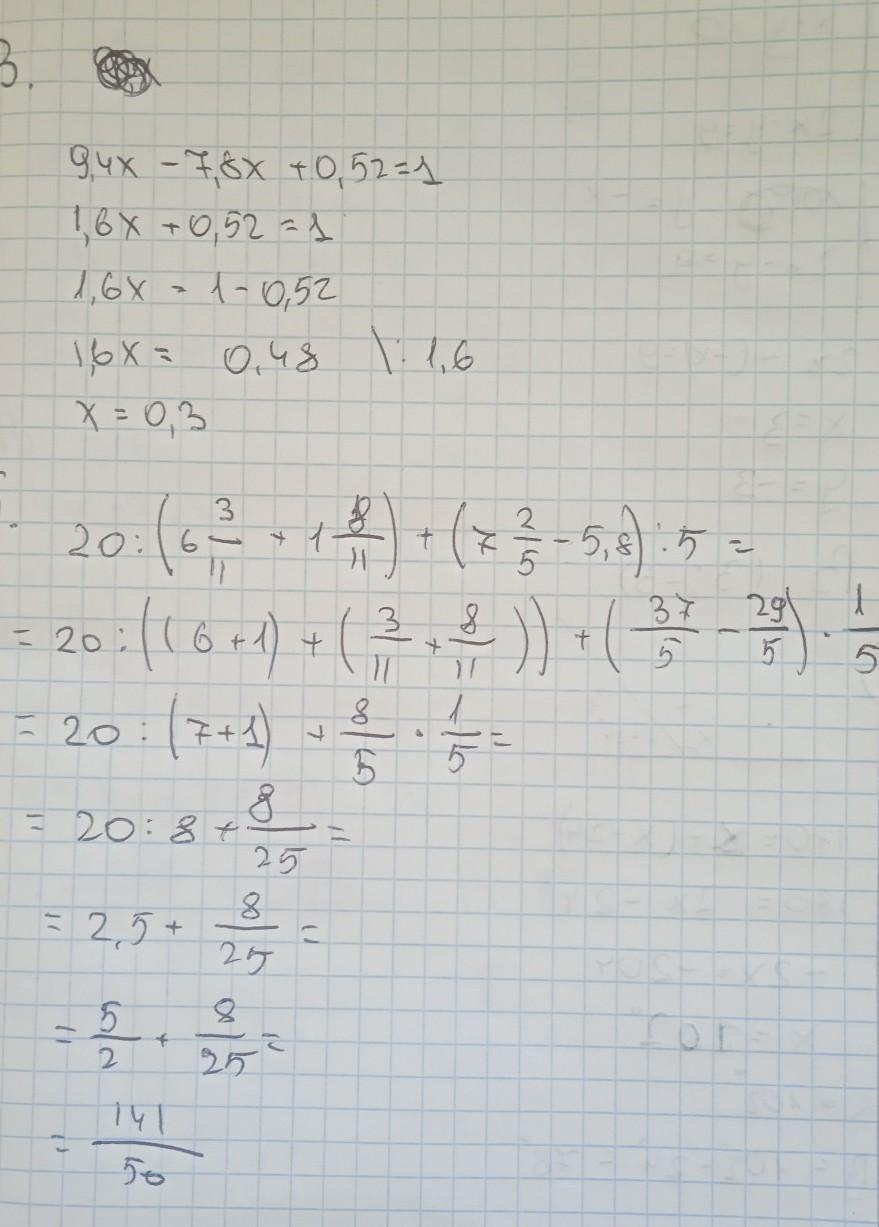 3.
9,4x - 7,8x + 0,52 = 1
1,6x + 0,52 = 1
1,6x = 1 - 0,52
1,6x = 0,48 \: 1,6
x = 0,3
20 : (6 3/11 + 1 8/11) + (7 2/5 - 5,8) : 5 =
= 20 : ((6 + 1) + (3/11 + 8/11)) + (37/5 - 29/5) · 1/5
= 20 : (7 + 1) + 8/5 · 1/5 =
= 20 : 8 + 8/25 =
= 2,5 + 8/25 =
= 5/2 + 8/25 =
= 141/50